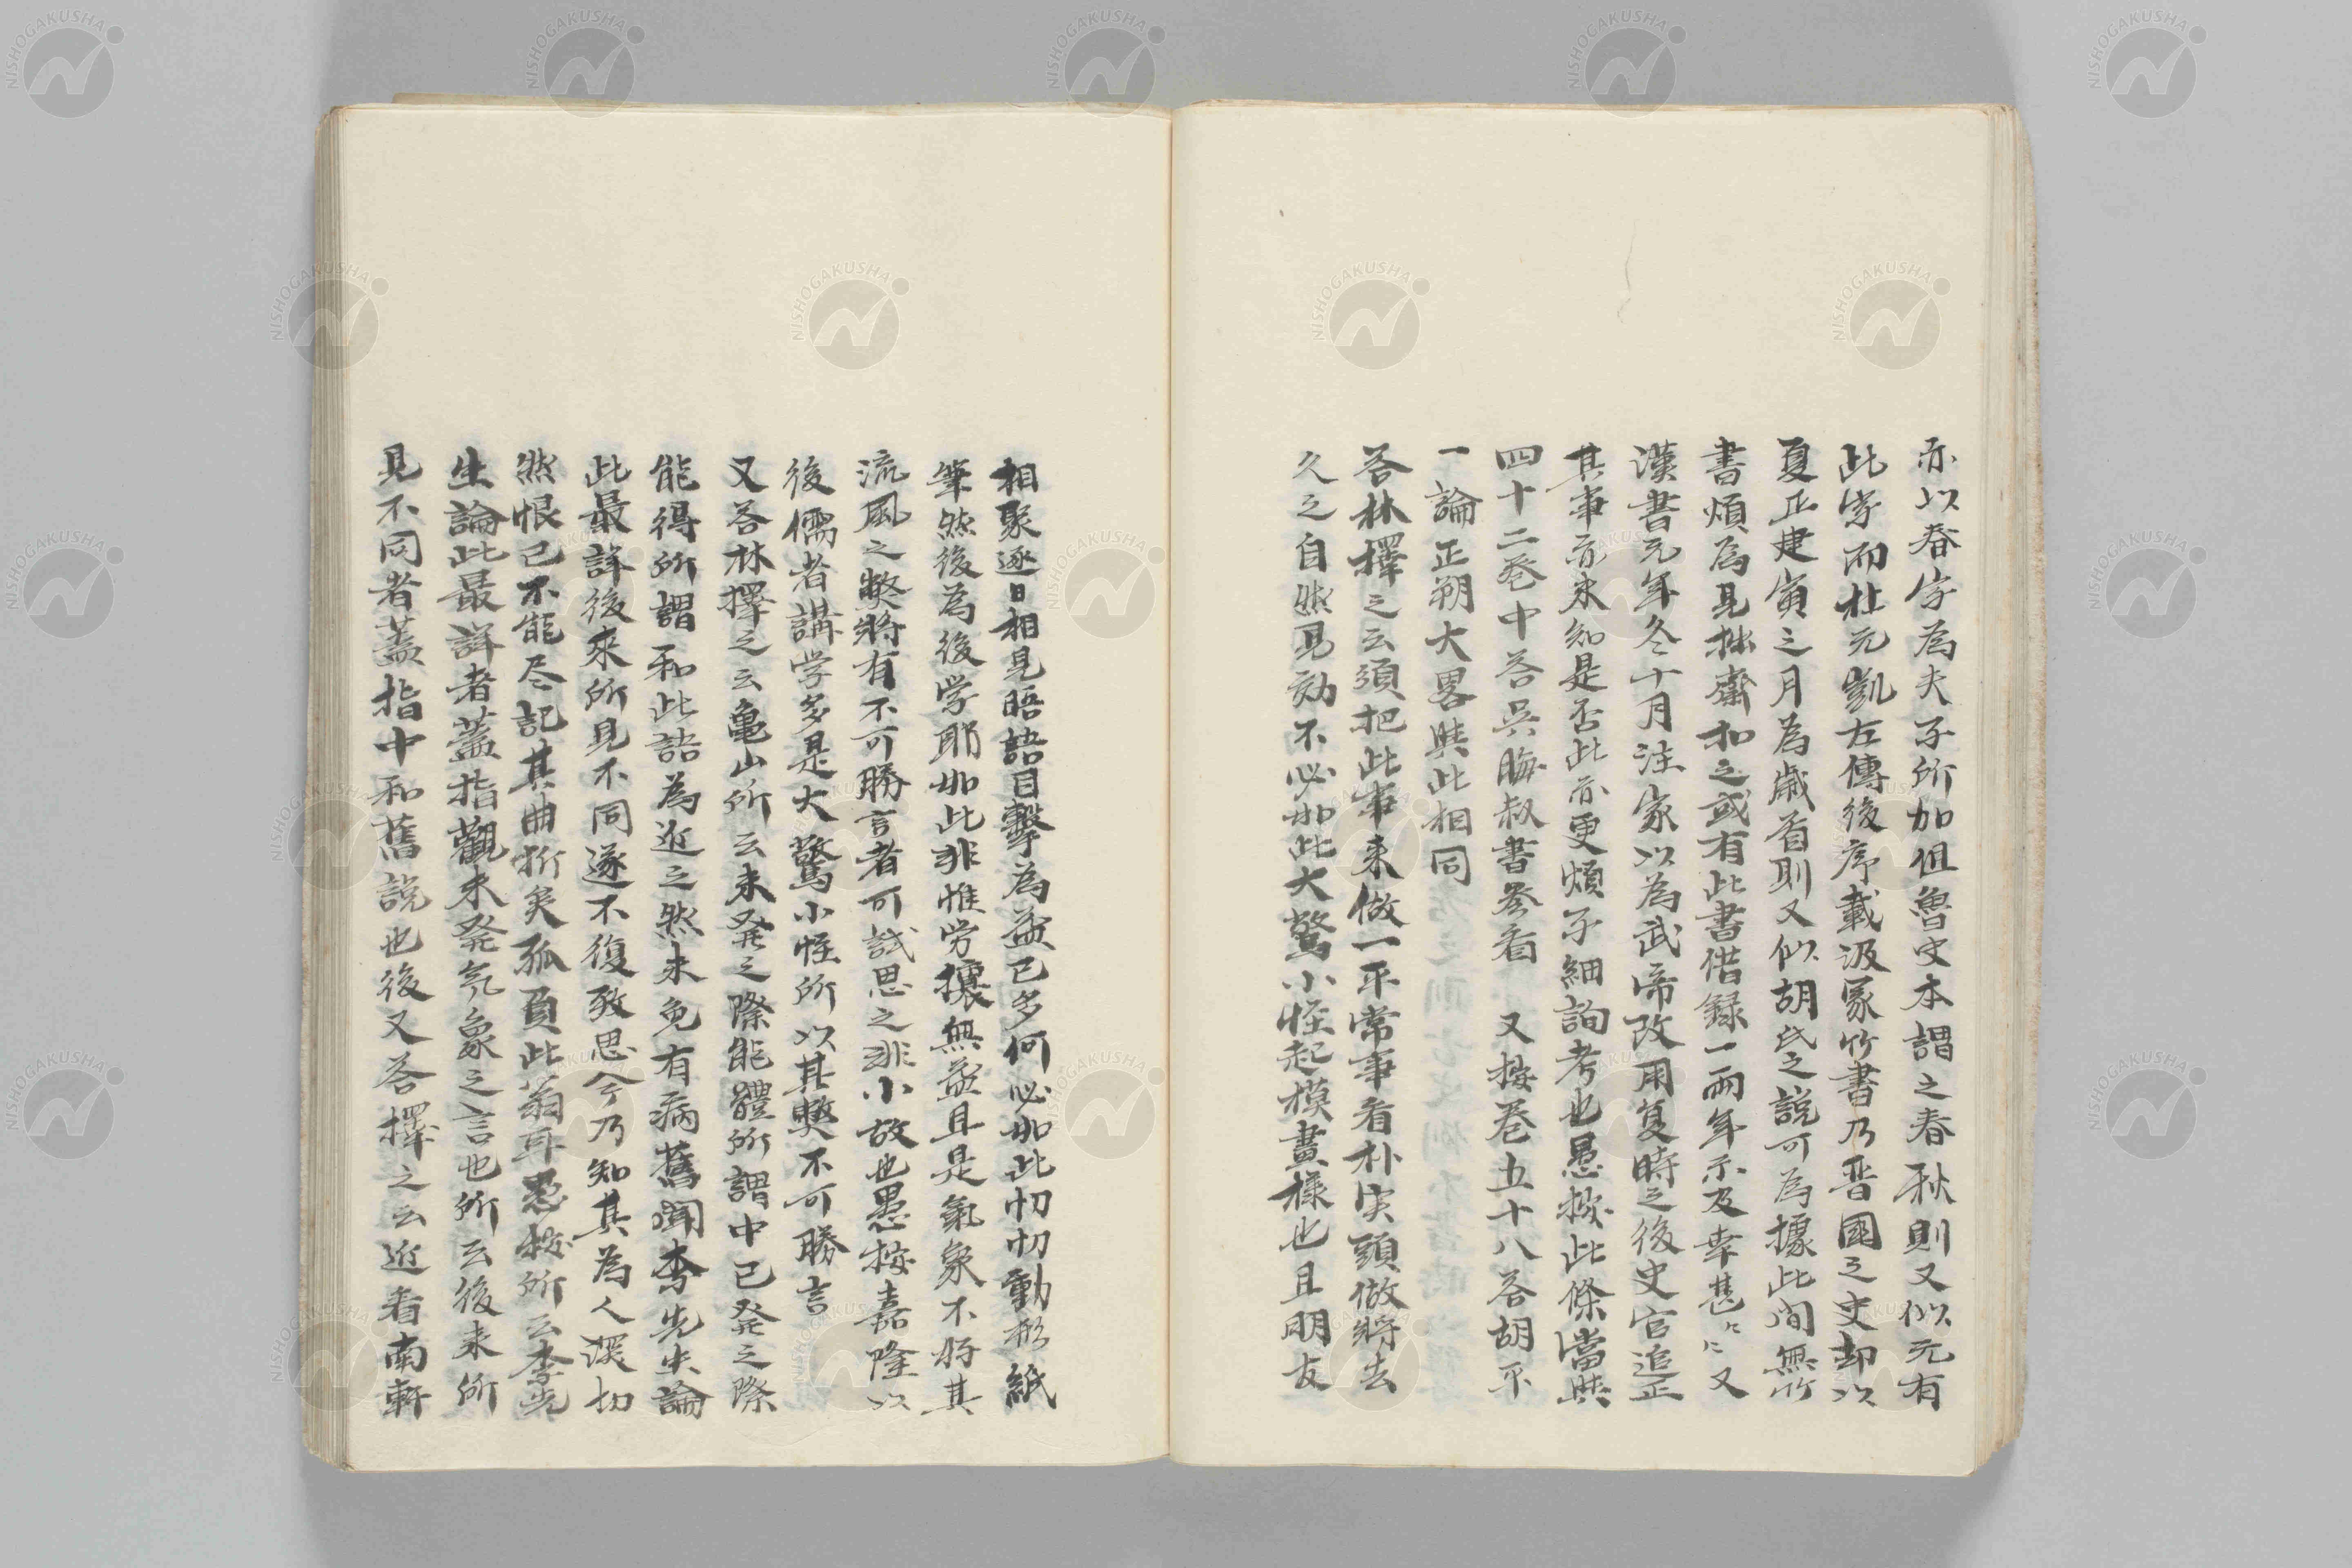 亦以春字為夫子所加但魯史本謂之春秋則又似元有
此字而杜元凱左傳後序載汲冢竹書乃晋國之史却以
夏正建寅之月為歳首則又似胡氏之説可為據此間無竹
書煩為見拙齋扣之或有此書借録一両年示及幸甚々々又
漢書元年冬十月注家以為武帝改用夏時之後史官追正
其事亦未知是否此亦更煩子細詢考也愚按此條當與
四十二巻中答呉晦叔書参看　又按巻五十八答胡平
一論正朔大畧與此相同
答林擇之云須把此事来做一平常事看朴実頭做將去
久之自然見効不必如此大驚小怪起模畫様也且朋友
相聚逐日相見晤語目擊為益已多何必如此忉忉動形紙
筆然後為後学耶如此非惟労攘無益且是氣象不好其
流風之弊將有不可勝言者可試思之非小故也愚按嘉隆以
後儒者講学多是大驚小怪所以其弊不可勝言
又答林擇之云亀山所云未発之際能體所謂中已発之際
能得所謂和此語為近之然未免有病舊聞李先生論
此最詳後來所見不同遂不復致思今乃知其為人深切
然恨已不能尽記其曲折矣孤負此翁耳愚按所云李先
生論此最詳者蓋指觀未発気象之言也所云後来所
見不同者蓋指中和舊説也後又答擇之云近看南軒
NISHOGAKUSHA